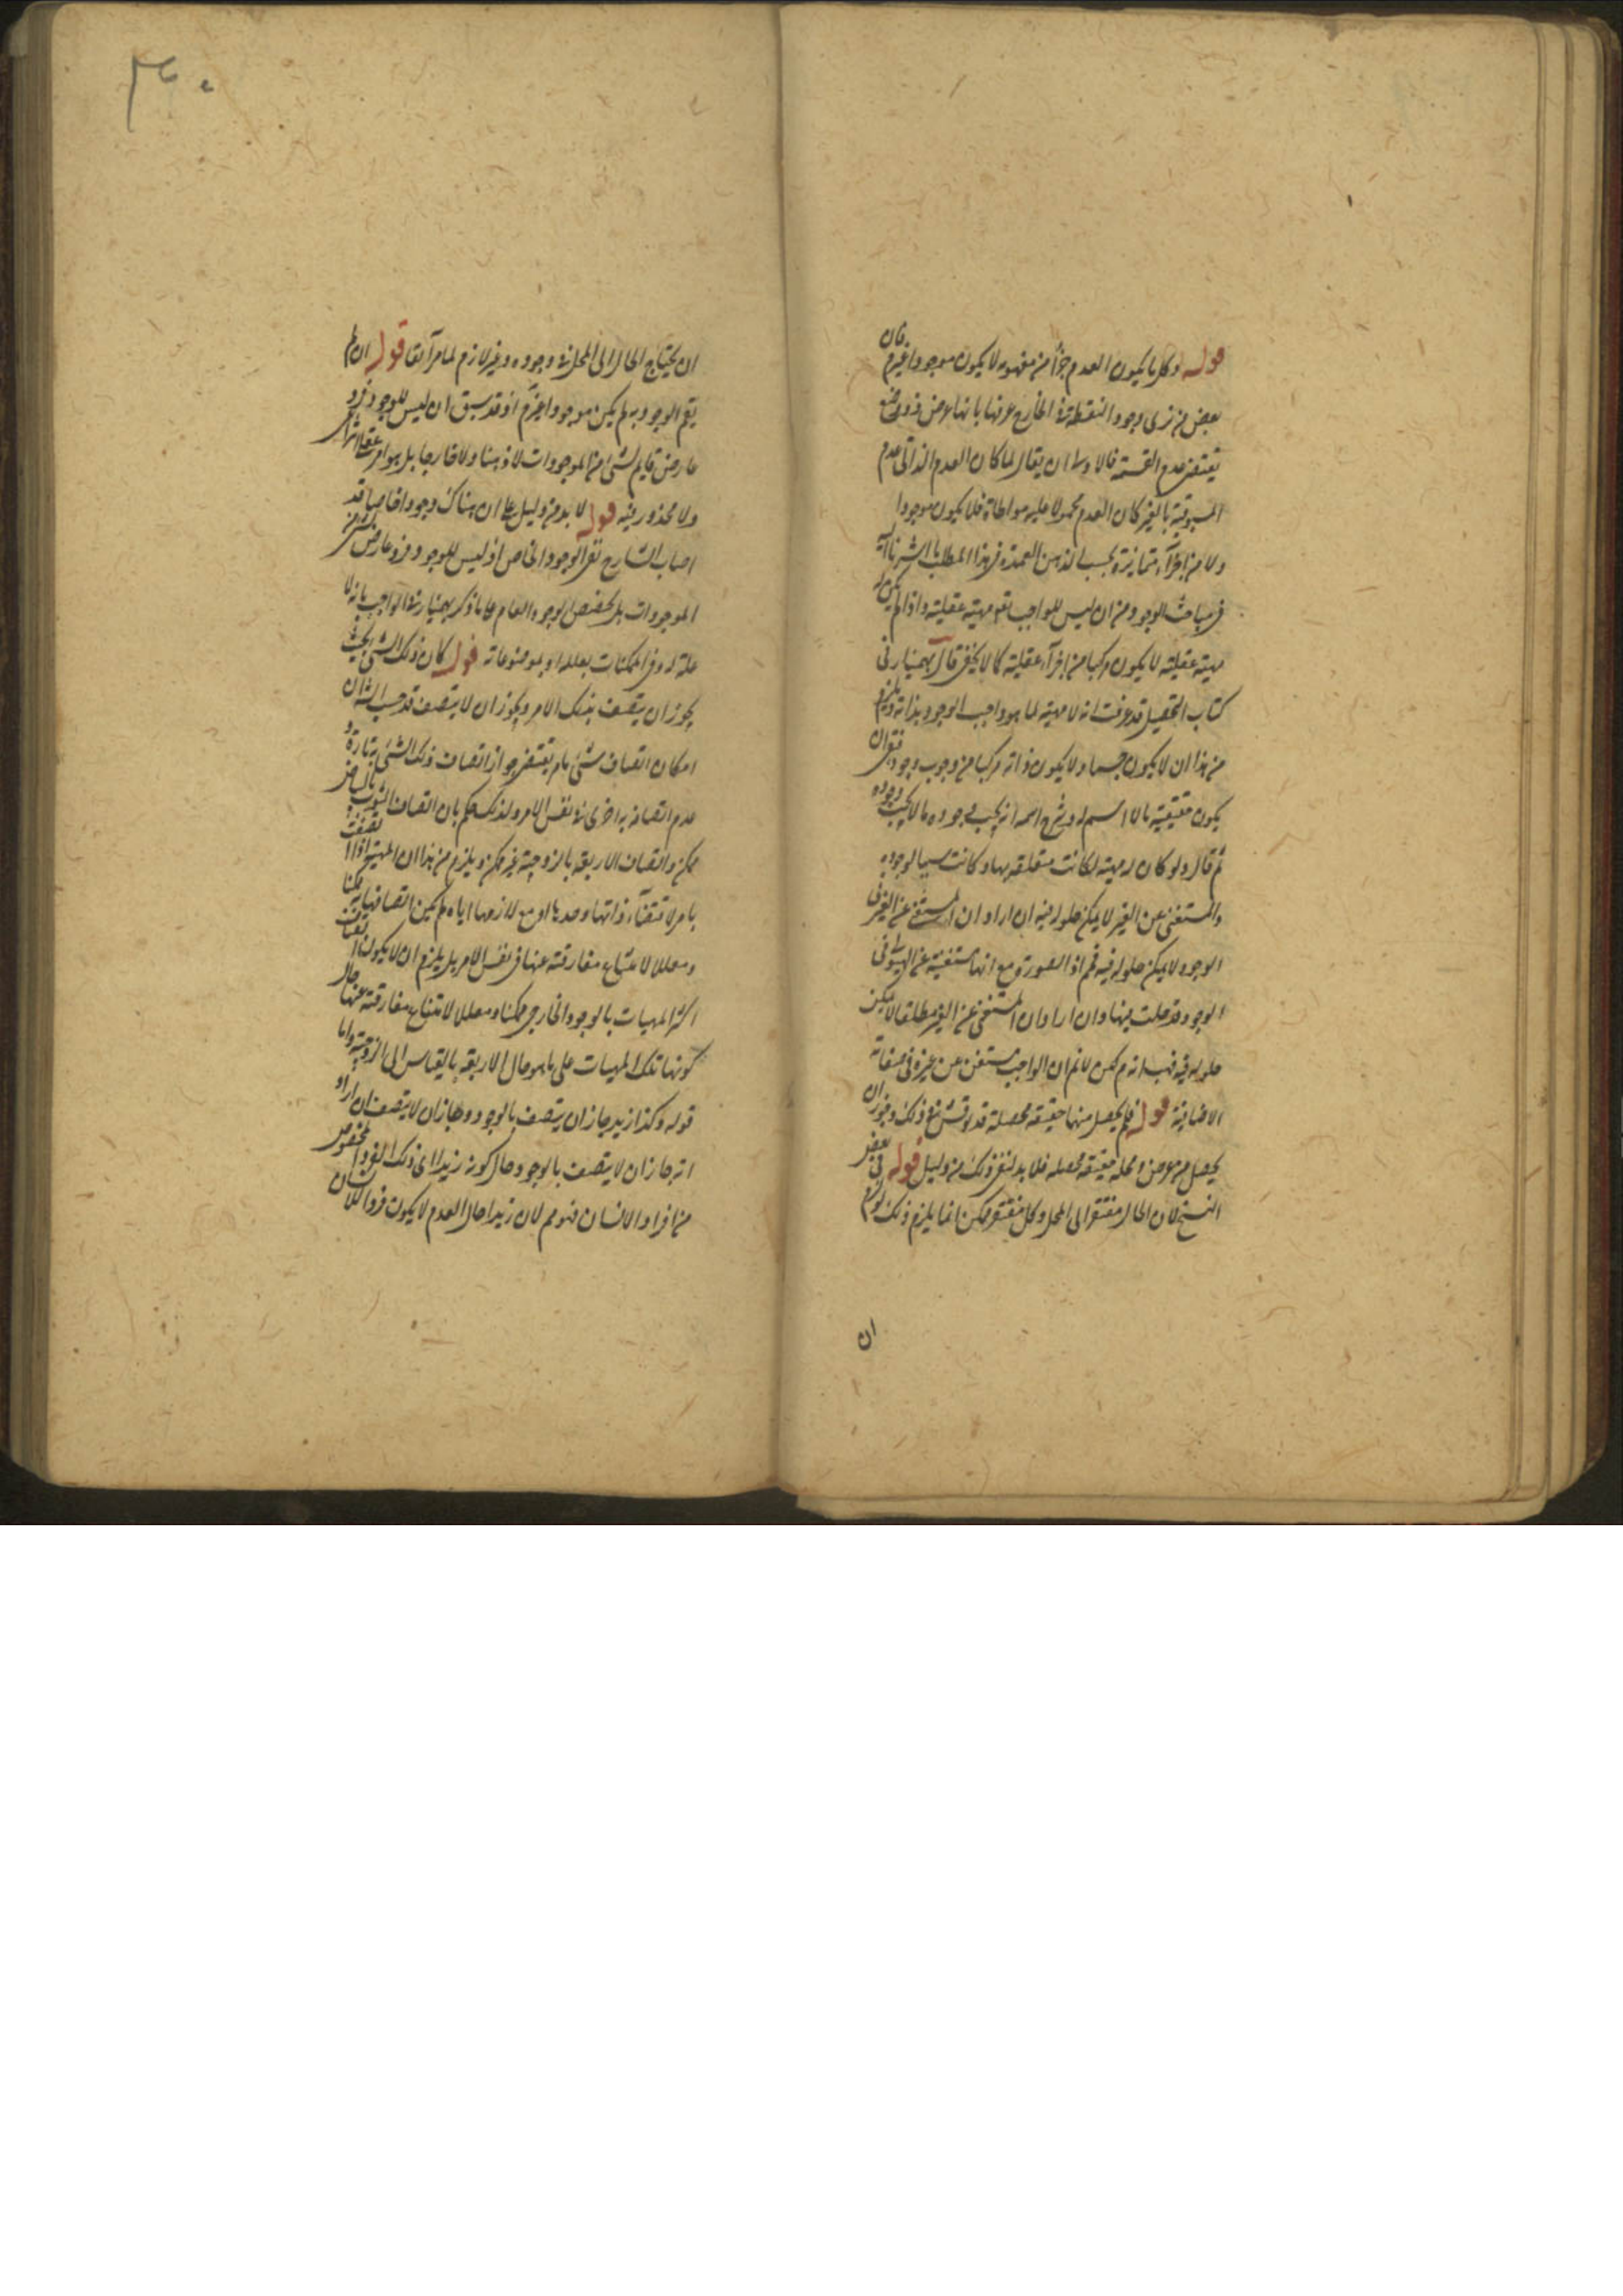 قوله وكل ما يكون العدم جزأ من مفهومه لا يكون موجودا غير م فان
بعض من نرى وجود النقطة فى الخارج عرفها بانها عرض ذو وضع
يقتضى عدم القسمة فالاولى ان يقال لما كان العدم الذاتى عدم
المسبوقية بالغير كان العدم محمولا عليه مواطاة فلا يكون موجودا
ولا من اجزآء متمايزة بحسب الذهن العمدة فى هذا المطلب ما اشرنا اليه
فى مباحث الوجود من ان ليس للواجب تع مهية عقلية واذا لم يكن له
مهية عقلية لا يكون مركبا من اجزآء عقلية كما لا يخفى قال بهمنيار فى
كتاب التحصيل قد عرفت انه لا مهية لما هو واجب الوجود بذاته ويلزم
من هذا ان لا يكون جسما ولا يكون ذاته مركبا من وجوب وجود
يكون حقيقية بالا اسم له وشرح اسمه انه يجب وجوده ما لا يجب وجوده
ثم قال ولو كان له مهية لكانت متعلقه بها وكانت سببا لوجوده
والمستغنى عن الغير لا يمكن حلوله فيه ان اراد ان المستغنى عن الغير فى
الوجود لا يمكن حلوله فيه فمم اذ الصورة مع انها مستغنية عن الهيولى فى
الوجود قد حلت فيها وان اراد ان المستغنى عن الغير مطلقا لا يمكن
حلوله فيه فهب انه م لكن لانم ان الواجب مستغن عن غيره فى صفاته
الاضافية قوله فلم يحصل منهما حقيقة محصلة قد نوقش فى ذلك وجوز ان
يحصل من عرض ومحله حقيقة محصله فلا بد لنفى ذلك من دليل قوله فى بعض
النسخ لان الحال مفتقر الى المحل وكل مفتقر ممكن انما يلزم ذلك لو لزم
ان
ان يحتاج الحال الى المحل فى وجوده وغير لازم لما مر آنفا قوله ان لم
يقم الوجود به لم يكن موجودا غير م اذ قد سبق ان ليس للوجود فرد
عارض قايم لشئ من الموجودات لا ذهنا ولا خارجا بل هو امر عقلا
ولا محذور فيه قوله لا بد من دليل على ان هناك وجودا خاصا قد
اصاب الشارح نفى الوجود الخاص اذ ليس للوجود فرد عارض لشئ من
الموجودات بل تخصص الوجود العام على ما ذكر بهمنيار فى الواجب بانه لا
علة له وفى الممكنات بعلله او بموضوعاته قوله كان ذلك الشئ بحيث
يجوز ان يتصف بذلك الامر ويجوز ان لا يتصف قد حسب الش ان
امكان اتصاف شئ بامر يقتضى جواز اتصاف ذلك الشئ به تارة و
عدم اتصافه به اخرى فى نفس الامر ولذلك حكم بان اتصاف الثوب بالبياض
ممكن واتصاف الاربعة بالزوجية غير ممكن ويلزم من هذا ان المهية اذا اتصفت
بامر لا قتضآء ذاتها وحدها او مع لازمها اياه لم يكن اتصافها به ممكنا
ومعللا لامتناع مفارقته عنها فى نفس الامر بل يلزم ان لا يكون اتصاف
اكثر المهيات بالوجود الخارجى ممكنا ومعللا لامتناع مفارقته عنها حال
كونها تلك المهيات على ما هو حال الاربعة بالقياس الى الزوجية واما
قوله وكذا زيد جاز ان يتصف بالوجود وجاز ان لا يتصف ان اراد
انه جاز ان لا يتصف بالوجود حال كونه زيدا اى ذلك الفرد المخصوص
من افراد الانسان فهو مم لان زيدا حال العدم لا يكون فردا للانسان